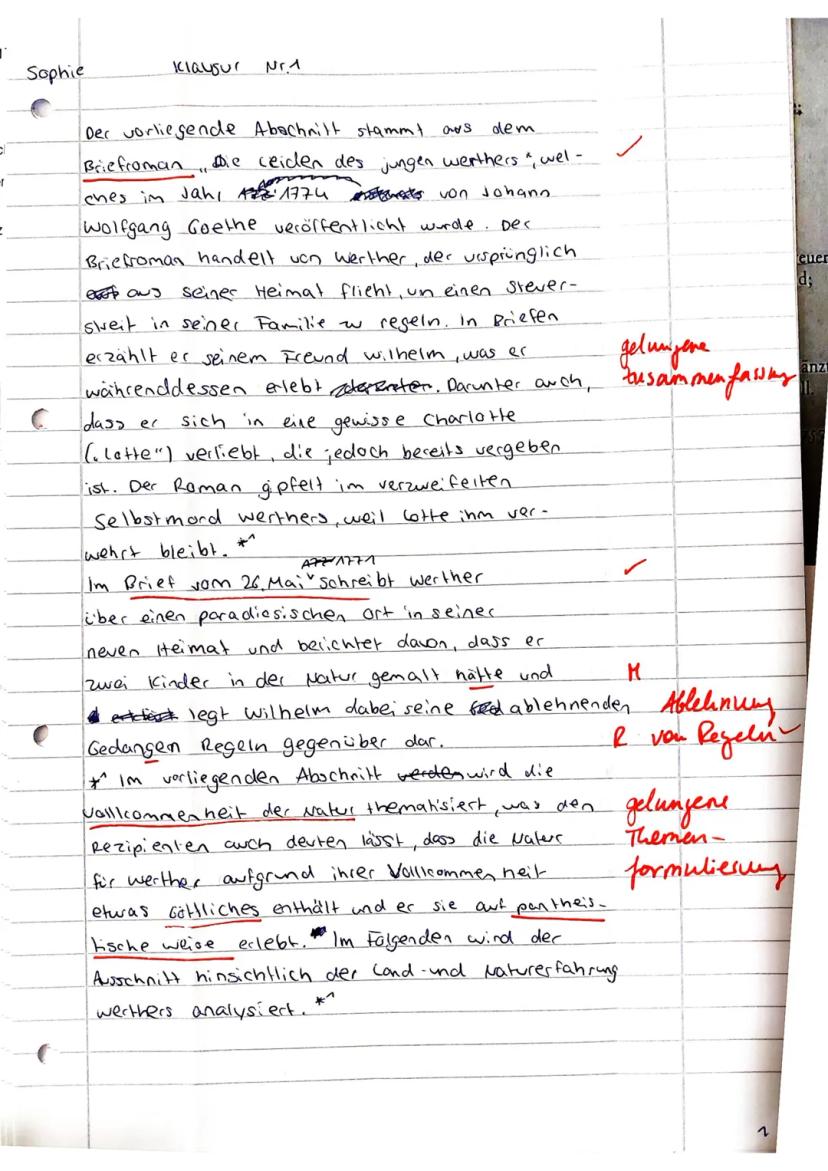 Sophie Klausur Nr.1
Der vorliegende Abschnitt stammt aus dem
Briefroman „Die Leiden des jungen Werthers“, wel- ✓
ches im Jahr 1774 von Johann
Wolfgang Goethe veröffentlicht wurde. Der
Briefroman handelt von Werther, der ursprünglich
aus seiner Heimat flieht, un einen Steuer-
streit in seiner Familie zu regeln. In Briefen
erzählt er seinem Freund Wilhelm, was er gelungene
währenddessen erlebt. Darunter auch, Zusammenfassung
dass er sich in eine gewisse Charlotte
(„Lotte“) verliebt, die jedoch bereits vergeben
ist. Der Roman gipfelt im verzweifelten
Selbstmord Werthers, weil Lotte ihm ver-
wehrt bleibt. *¹
1771
Im Brief vom 26. Mai ˅ schreibt Werther ✓
über einen paradiesischen Ort in seiner
neuen Heimat und berichtet davon, dass er
zwei Kinder in der Natur gemalt hätte und M
legt Wilhelm dabei seine ablehnenden Ablehnung
Gedangen Regeln gegenüber dar. R von Regeln ✓
*¹ Im vorliegenden Abschnitt wird die
Vollkommenheit der Natur thematisiert, was den gelungene
Rezipienten auch deuten lässt, dass die Natur Themen-
für Werther aufgrund ihrer Vollkommenheit formulierung
etwas Göttliches enthält und er sie auf pantheis-
tische Weise erlebt. Im Folgenden wird der
Ausschnitt hinsichtlich der Land- und Naturerfahrung
Werthers analysiert. *¹
1